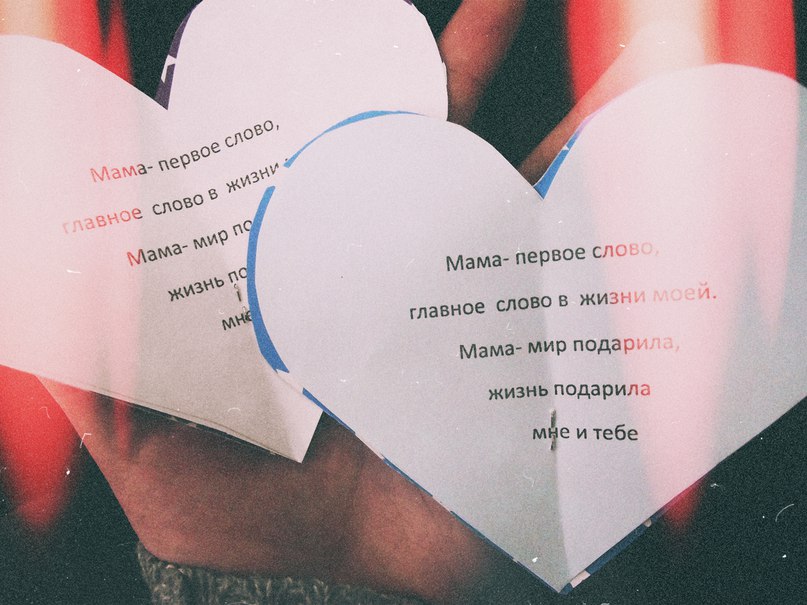 Мама- первое слово,
главное слово в жизни
Мама- мир по
жизнь по
мне
Мама- первое слово,
главное слово в жизни моей.
Мама- мир подарила,
жизнь подарила
мне и тебе